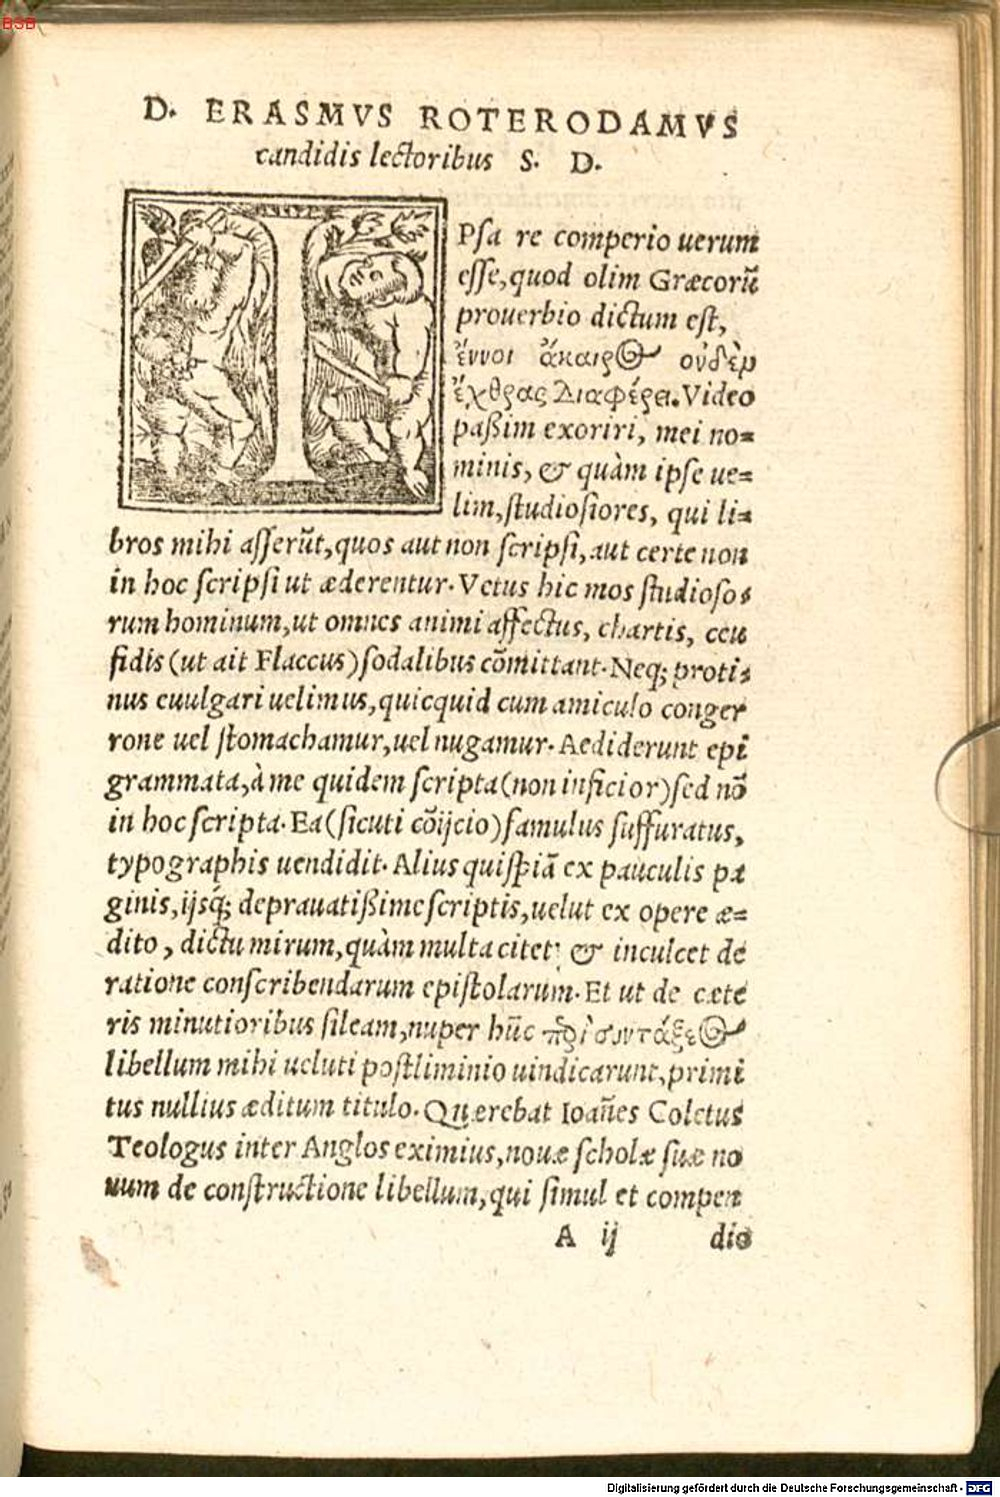 BSB
D. ERASMVS ROTERODAMVS
candidis lectoribus S. D.
IPsa re comperio uerum
esse, quod olim Græcorũ
prouerbio dictum est,
ἔννοι ἄκαιρος οὐδὲμ
ἔχθρας διαφέρει. Video
paßim exoriri, mei no=
minis, & quàm ipse ue=
lim, studiosiores, qui li=
bros mihi asserũt, quos aut non scripsi, aut certe non
in hoc scripsi ut æderentur. Vetus hic mos studioso=
rum hominum, ut omnes animi affectus, chartis, ceu
fidis (ut ait Flaccus) sodalibus cõmittant. Neq; proti=
nus euulgari uelimus, quicquid cum amiculo conger
rone uel stomachamur, uel nugamur. Aediderunt epi
grammata, à me quidem scripta (non inficior) sed nõ
in hoc scripta. Ea (sicuti cõijcio) famulus suffuratus,
typographis uendidit. Alius quispiã ex pauculis pa
ginis, ijsq́; deprauatißime scriptis, uelut ex opere æ=
dito, dictu mirum, quàm multa citet, & inculcet de
ratione conscribendarum epistolarum. Et ut de cæte
ris minutioribus sileam, nuper hũc περὶ συντάξεος
libellum mihi ueluti postliminio uindicarunt, primi
tus nullius æditum titulo. Quærebat Ioañes Coletus
Teologus inter Anglos eximius, nouæ scholæ suæ no
uum de constructione libellum, qui simul et compen
A ij dio
Digitalisierung gefördert durch die Deutsche Forschungsgemeinschaft - DFG